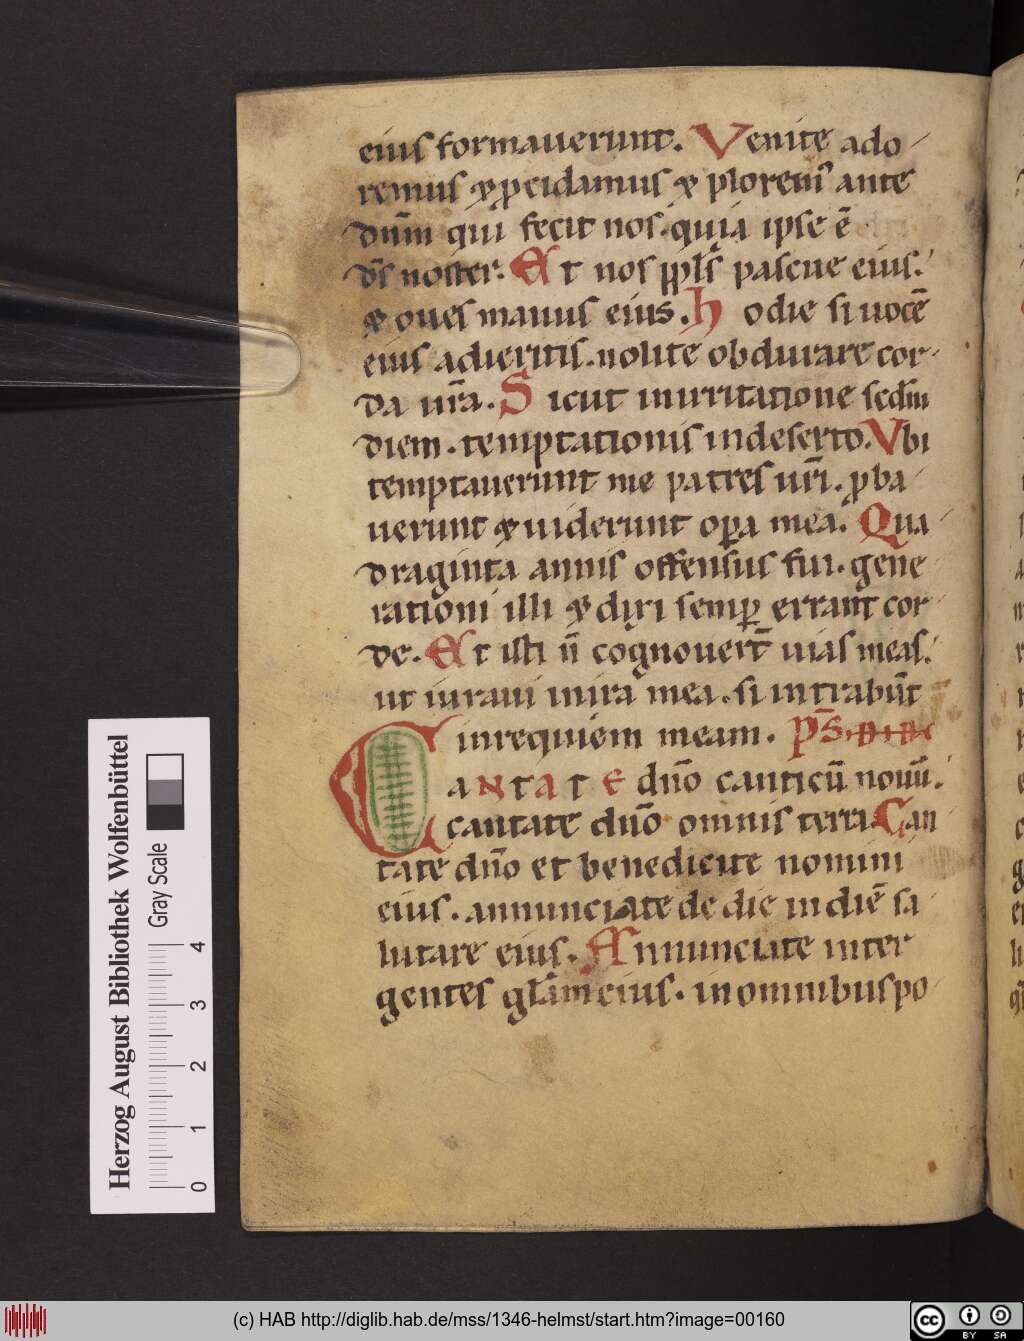 eius formauerunt. Venite ado
remus ⁊ p̱cidamus ⁊ plorem᷒ ante
dn̄m qui fecit nos. quia ipse ē
ds̄ noster. Et nos ppl̄s pascue eius.
⁊ oues manus eius. Hodie si uocē
eius adieritis. nolite obdurare cor
da ur̄a. Sicut inirritatione scd̄m
diem. temptationis indeserto. Vbi
temptauerunt me patres ur̄i. ꝓba
uerunt ⁊ uiderunt oꝑa mea. Qua
draginta annis offensus fui. gene
rationi illi ⁊ dixi semꝑ errant cor
de. Et isti n̄ cognouert̄ uias meas.
ut iuraui inira mea. si intrabūt
inrequiem meam. ps̄
CANTATE dn̄o canticū nouū.
cantate dn̄o omnis terra. Can
tate dn̄o et benedicite nomini
eius. annunciate de die indiē sa
lutare eius. Annunciate inter
gentes gl̄am eius. inomnibus po
Herzog August Bibliothek Wolfenbüttel
Gray Scale
0 1 2 3 4
(c) HAB http://diglib.hab.de/mss/1346-helmst/start.htm?image=00160
cc BY SA